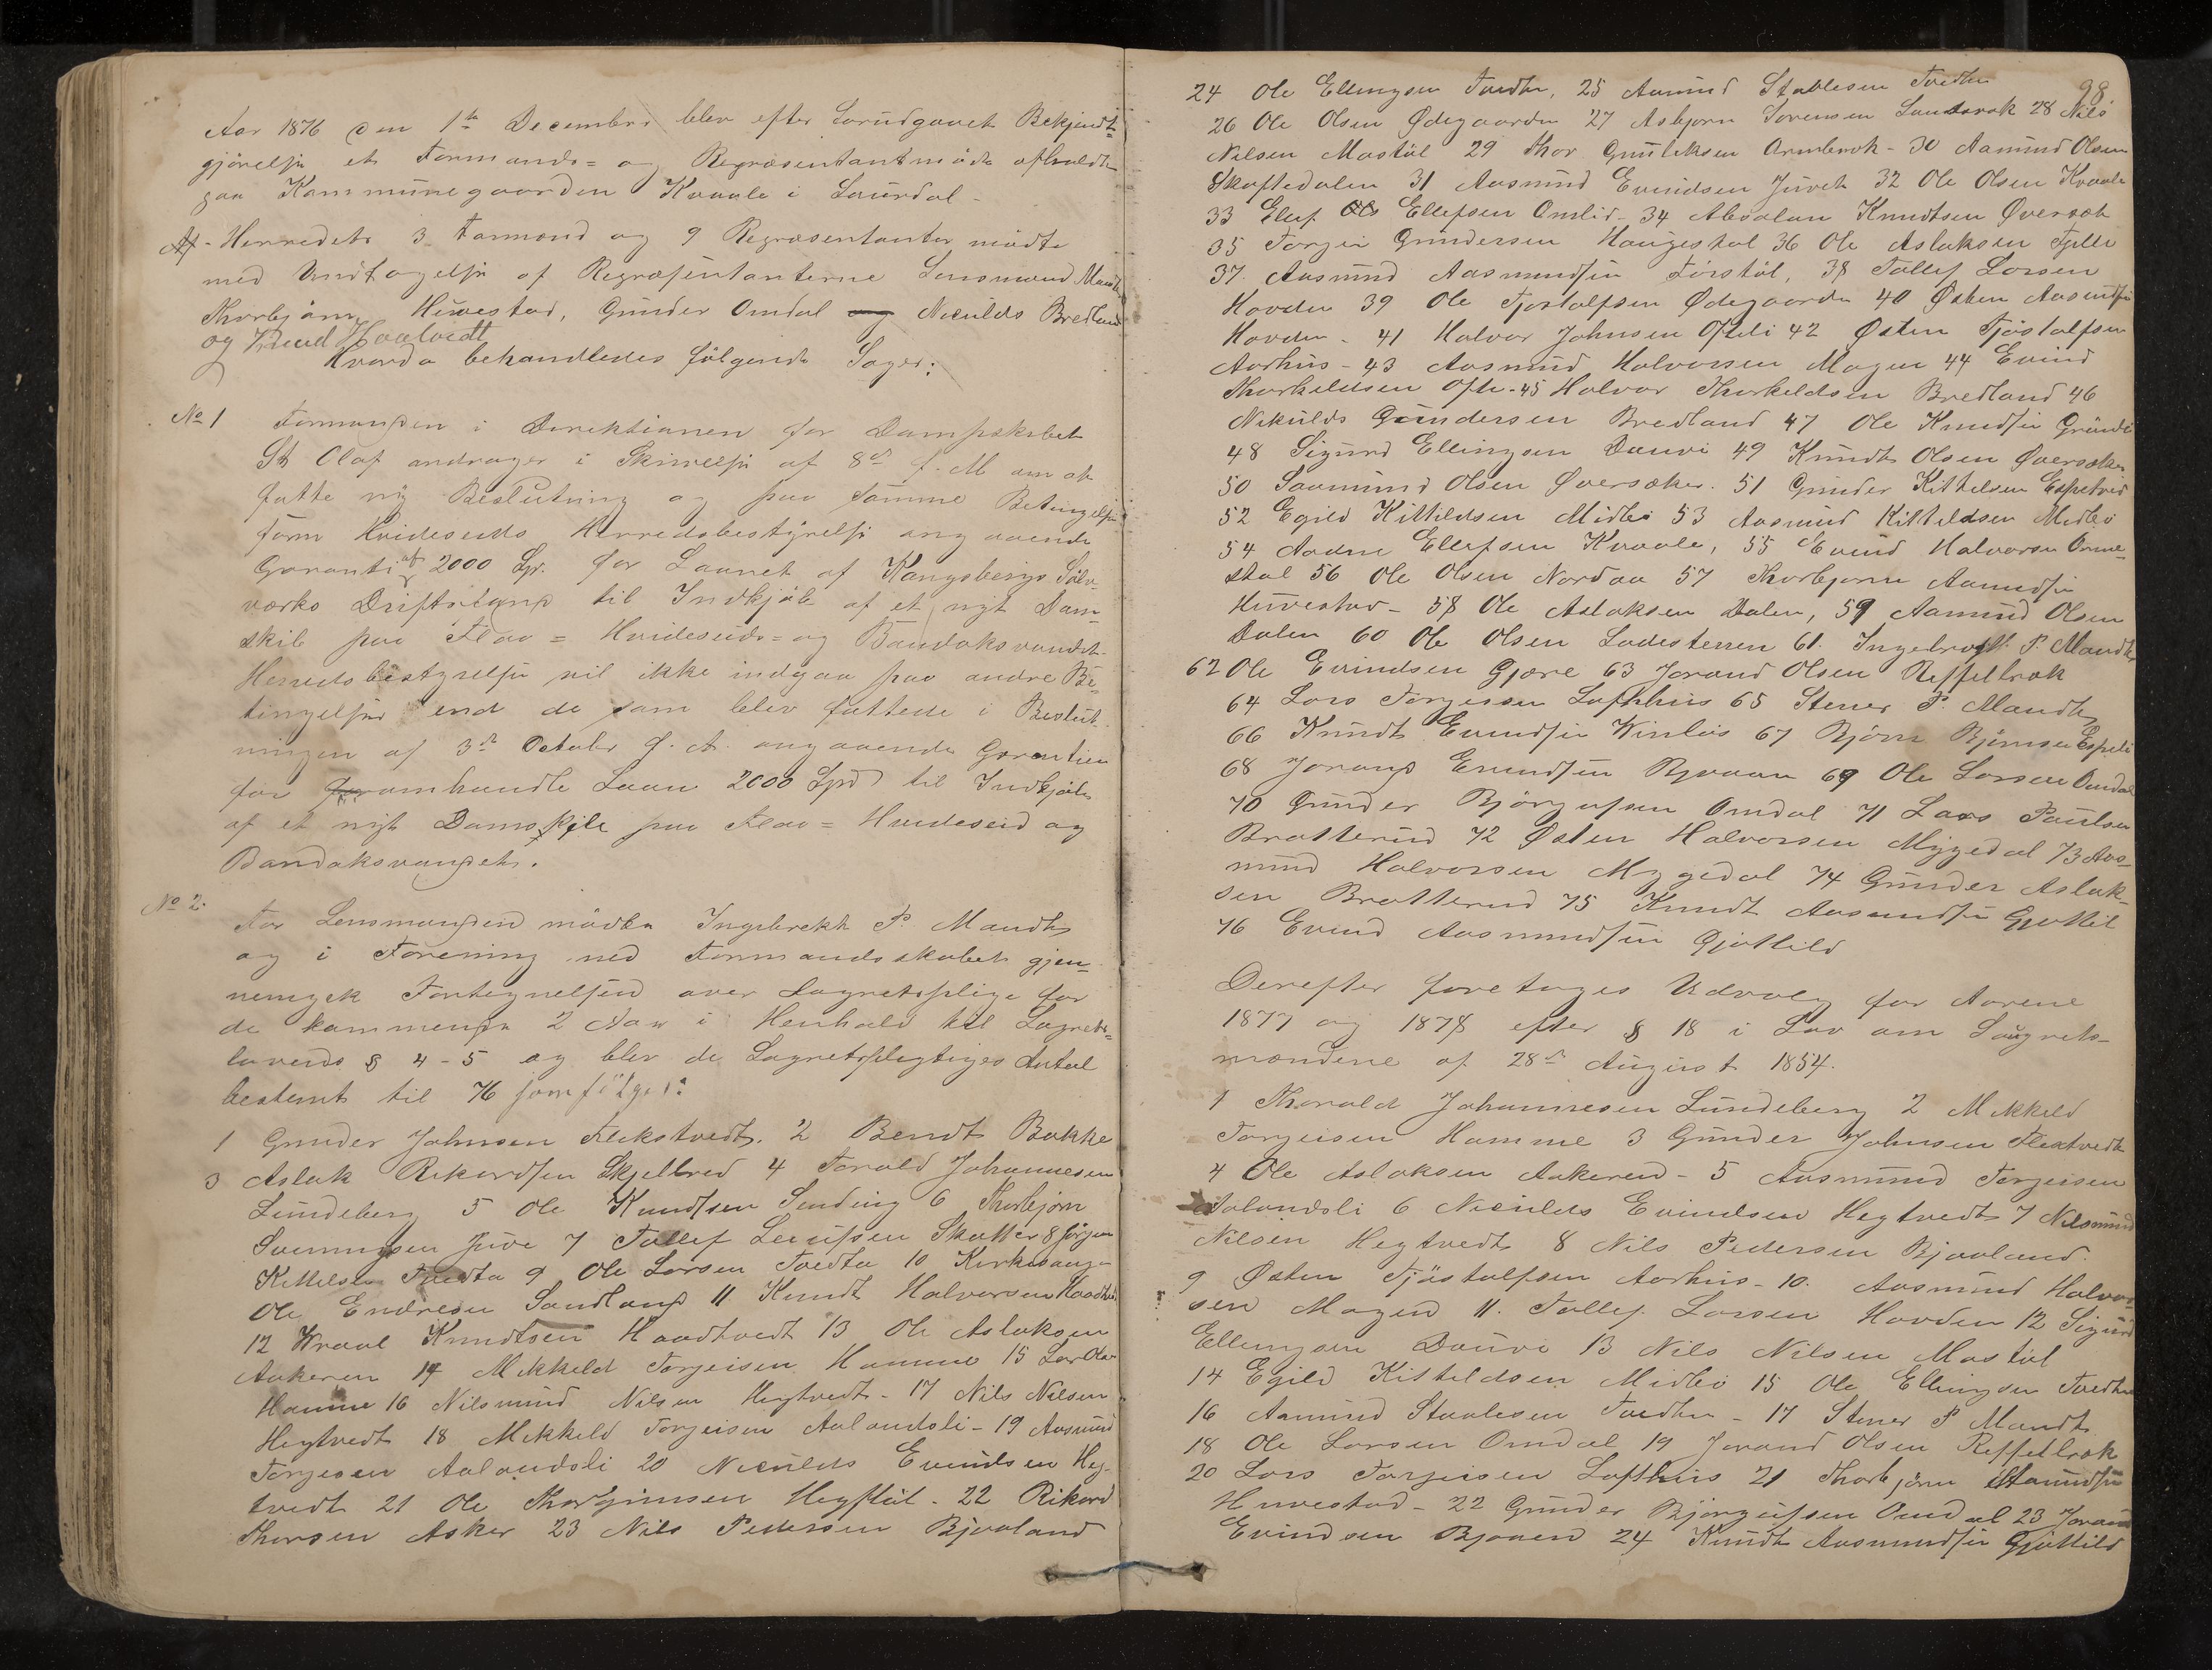 Aar 1876 den 1te December blev efter forudgaaet Bekjendt-
gjörelse et Formands= og Repræsentantmöde afholdt
paa Kommunegaarden Kvaale i Laurdal -
Af Herredets 3 Formænd og 9 Repræsentanter mödte
med Undtagelse af Repræsentanterne Lensmand Mandt
Thorbjörn Huvestad, Gunder Omdal og Niculds Bredland
og Knud Haatvedt
Hvorda behandledes fölgende Sager:
No 1 Formanden i Direktionen for Dampskibet
St Olaf andrager i Skrivelse af 8de f. M om at
fatte ny Beslutning og paa samme Betingelser
som Hvideseids Herredsbestyrelse angaaende
Garanti af 2000 Spr. for Laanet af Kongsbergs Sölv-
værks Driftsfond til Indkjöb af et nyt Dam-
skib paa Flaa= Hvideseids= og Bandaksvandet.
Herredsbestyrelsen vil ikke indgaa paa andre Be-
tingelser end de som blev fattede i Beslut-
ningen af 3de October d. A. angaaende Garantien
for omhandle Laan 2000 Spd til Indkjöb
af et nyt Damskib paa Flaa= Hvideseid og
Bandaksvandet.
No 2. For Lensmanden mödte Ingebrekt P. Mandt
og i Forening med Formandsskabet gjen-
nemgik Fortegnelsen over Lagretsplige for
de kommende 2 Aar i Henhold til Lagrets-
lovens § 4-5 og blev de Lagretspligtiges Antal
bestemt til 76 som fölger:
1 Gunder Johnsen Flekstvedt. 2 Bendt Bakke
3 Aslak Rikardsen Skjelbred 4 Torald Johannesen
Lundeberg 5 Ole Knudsen Sending 6 Thorbjörn
Sveinungsen Juve 7 Tollef Leeufsen Skatter 8 Jörgen
Kittelsen Tvedta 9 Ole Larsen Tvedta 10 Kirkesanger
Ole Endresen Sandland 11 Knudt Halvorsen Haadtvedt
12 Wraal Knudtsen Haadtvedt 13 Ole Aslaksen
Aakeren 14 Mikkeld Torgeisen Hamme 15 Lar Ols
Hamme 16 Nilsmund Nilsen Hegtvedt - 17 Nils Nilsen
Hegtvedt 18 Mikkeld Torgeisen Aalandsli - 19 Aasmund
Torgeisen Aalandsli 20 Niculds Evindsen Heg-
tvedt 21 Ole Thorgrimsen Hegstül - 22 Rikard
Thorsen Asker 23 Nils Pedersen Bjaaland
98
24 Ole Ellingsen Tvedten, 25 Aamund Staalesen Tvedten
26 Ole Olsen Ödegaarden 27 Asbjorn Sorensen Landsrok 28 Nils
Nilsen Mostül 29 Thor Gunleksen Ormbrok - 30 Aamund Olsen
Skaftedalen 31 Aasmund Evindsen Juvet 32 Ole Olsen Kvaale
33 Elef Ellefsen Omlid - 34 Abraham Knudtsen Översæt
35 Torgei Gundersen Haugestal 36 Ole Aslaksen Fjelle
37. Aasmund Aasmundsen Förstöl, 38 Tollef Larsen
Hovden 39 Ole Tjostolfsen Ödegaarden 40 Östen Aasmundsen
Hovden - 41 Halvor Johnsen Ofteli 42 Östen Tjöstolfsen
Aarhus - 43 Aasmund Halvorsen Mogen 44 Evind
Thorkildsen Ofte. 45 Halvor Thorkeldsen Bredland 46
Nikulds Gundersen Bredland 47 Ole Knudsen Grimli
48 Sigurd Ellingsen Dauvi 49 Knudt Olsen Översæker
50 Saamund Olsen Översæker. 51 Gunder Kittelsen Espetvid
52 Egild Kittildsen Midbö 53 Aasmund Kittildsen Midbö
54 Aadne Ellefsen Kvaale, 55 Evind Halvorsen Orme-
stul 56 Ole Olsen Nordaa 57 Thorbjorn Aamundsen
Huvestad - 58 Ole Aslaksen Dalen, 59 Aamund Olsen
Dalen 60 Ole Olsen Ladesteren 61. Ingebregt P. Mandt
62 Ole Evindsen Gjære 63 Jorand Olsen Reffelbrok
64 Lars Torgeisen Lofthus 65 Stener P. Mandt
66 Knudt Evindsen Winlös 67 Björn Björnsen Espeli
68 Jorand Evindsen Bjaaen 69 Ole Larsen Omdal
70 Gunder Björgufsen Omdal 71 Lars Paulsen
Bratterud 72 Östen Halvorsen Myggedal 73 Aas-
mund Halvorsen Myggedal 74 Gunder Aslak-
sen Bratterud 75 Knudt Aasmundsen Gjøttil
76 Evind Aasmundsen Gjöttild
Derefter foretoges Udvalg for Aarene
1877 og 1878 efter § 18 i Lov om Laugrets-
mændene af 28de August 1854.
1 Thorald Johannesen Lundeberg 2 Mikkeld
Torgeisen Hamme 3 Gunder Johnsen Flextvedt
4 Ole Aslaksen Aakeren - 5 Aasmund Torgeisen
Aalandsli 6 Niculds Evindsen Hegtvedt 7 Nilsmund
Nilsen Hegtvedt 8 Nils Pedersen Bjaaland.
9 Östen Tjöstolfsen Aarhus - 10. Aasmund Halvor-
sen Mogen 11. Tollef Larsen Hovden 12 Sigurd
Ellingsen Dauvi 13 Nils Nilsen Mostül
14 Egild Kittildsen Midbö 15 Ole Ellingsen Tvedten
16 Aamund Staalesen Tvedten - 17 Stener P Mandt
18 Ole Larsen Omdal 19 Jorand Olsen Reffelbrok
20 Lars Torgeisen Lofthus 21 Thorbjörn Aamundsen
Huvestad - 22 Gunder Björgufsen Omdal 23 Jorand
Evindsen Bjaaen 24 Knudt Aasmundsen Gjöttild